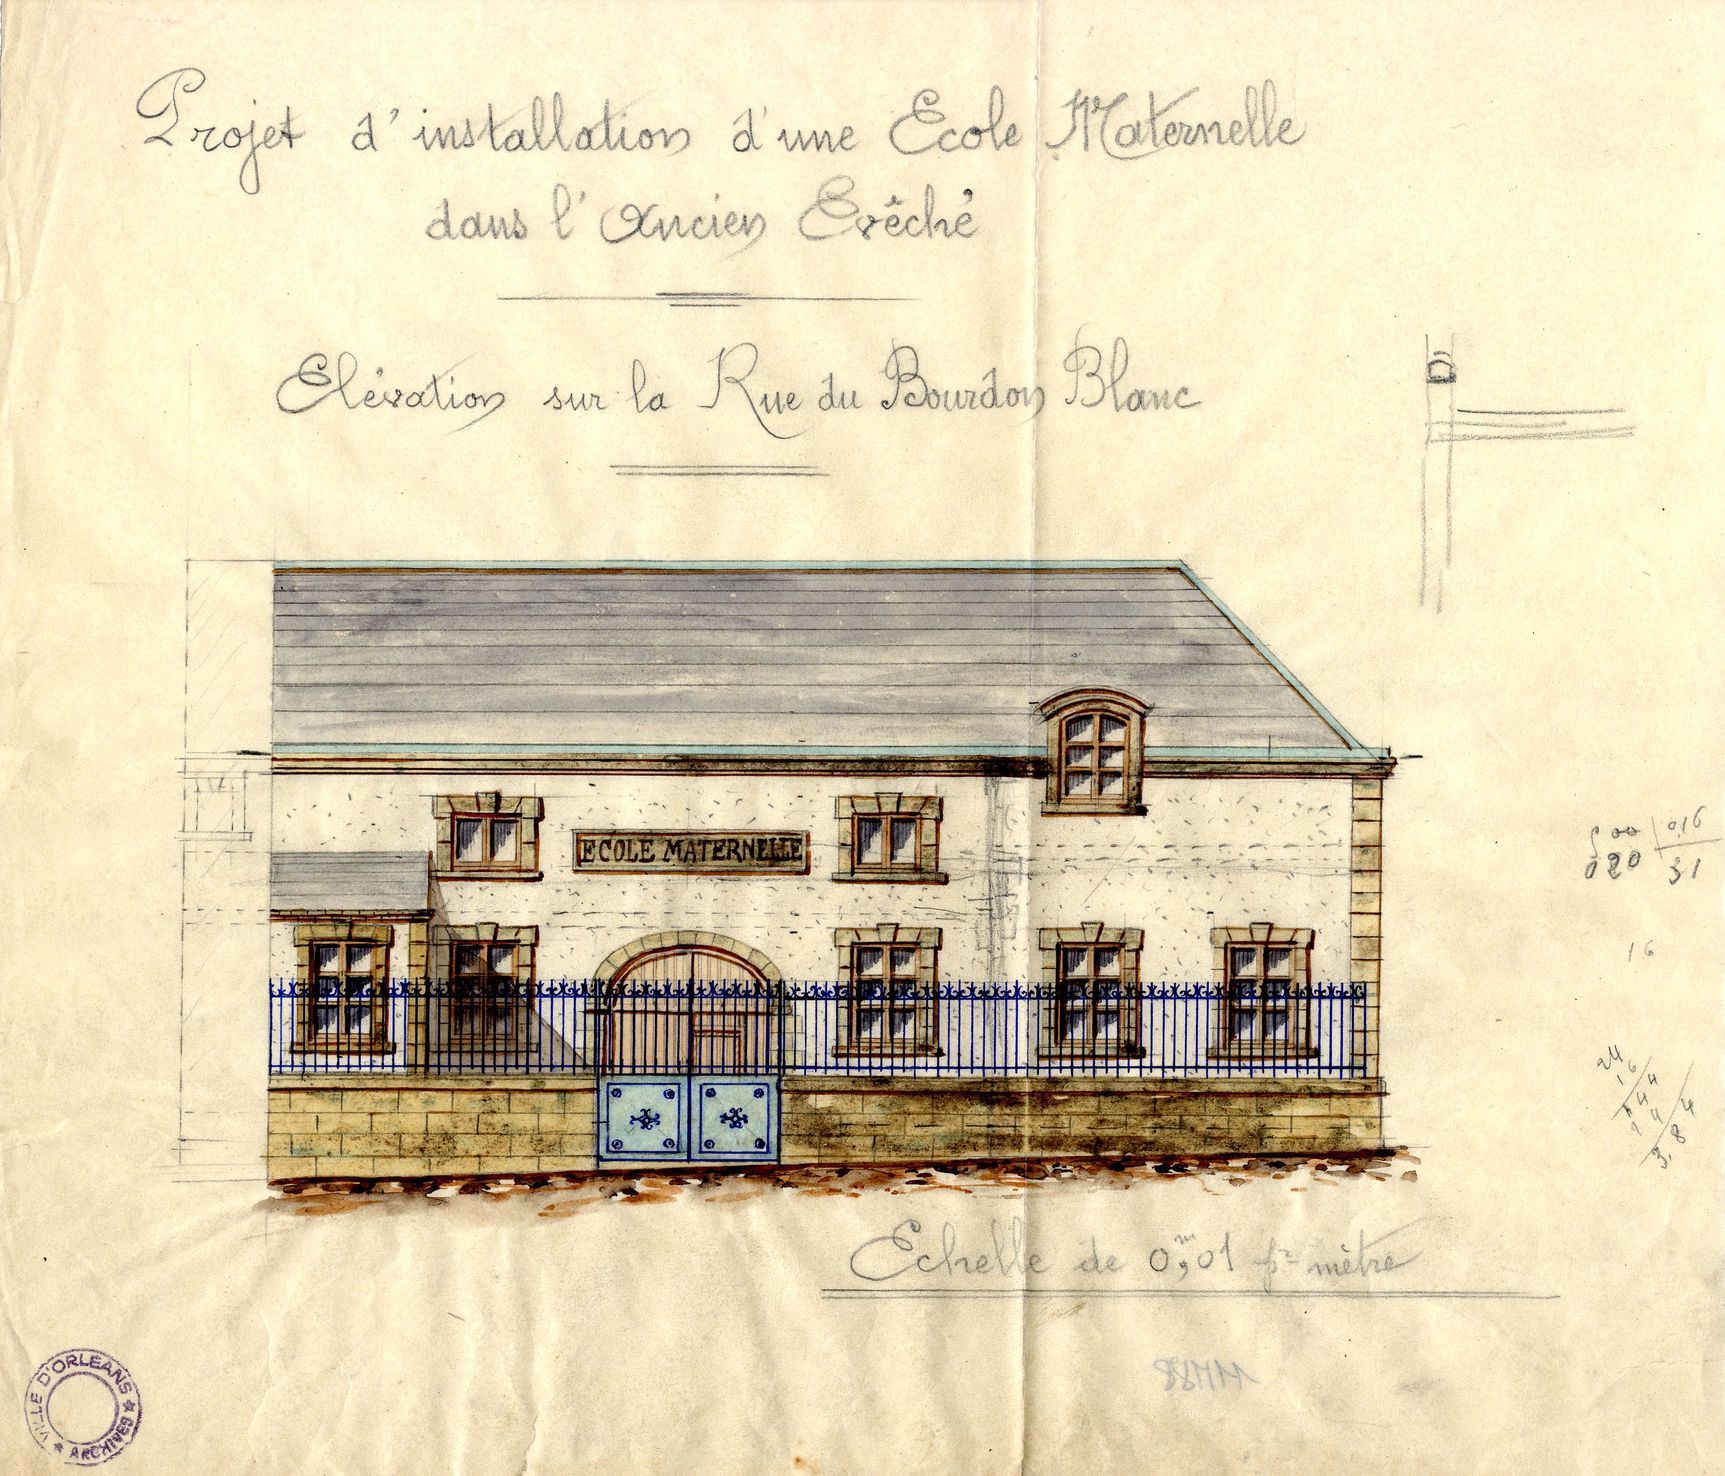 Projet d'installation d'une Ecole Maternelle
dans l'Ancien Evêché
Elévation sur la Rue du Bourdon Blanc
ECOLE MATERNELLE
16
Echelle de 0,m01 pr mètre
VILLE D'ORLEANS ★ ARCHIVES ★